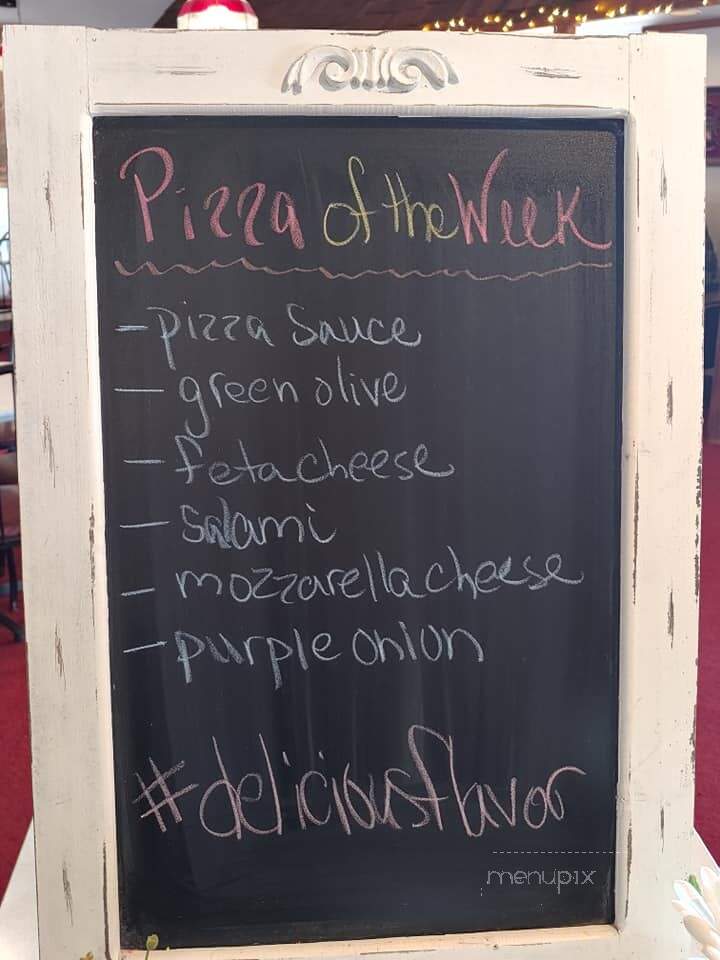 Pizza of the Week
- pizza sauce
- green olive
- feta cheese
- salami
- mozzarella cheese
- purple onion
#deliciousflavor
menupix